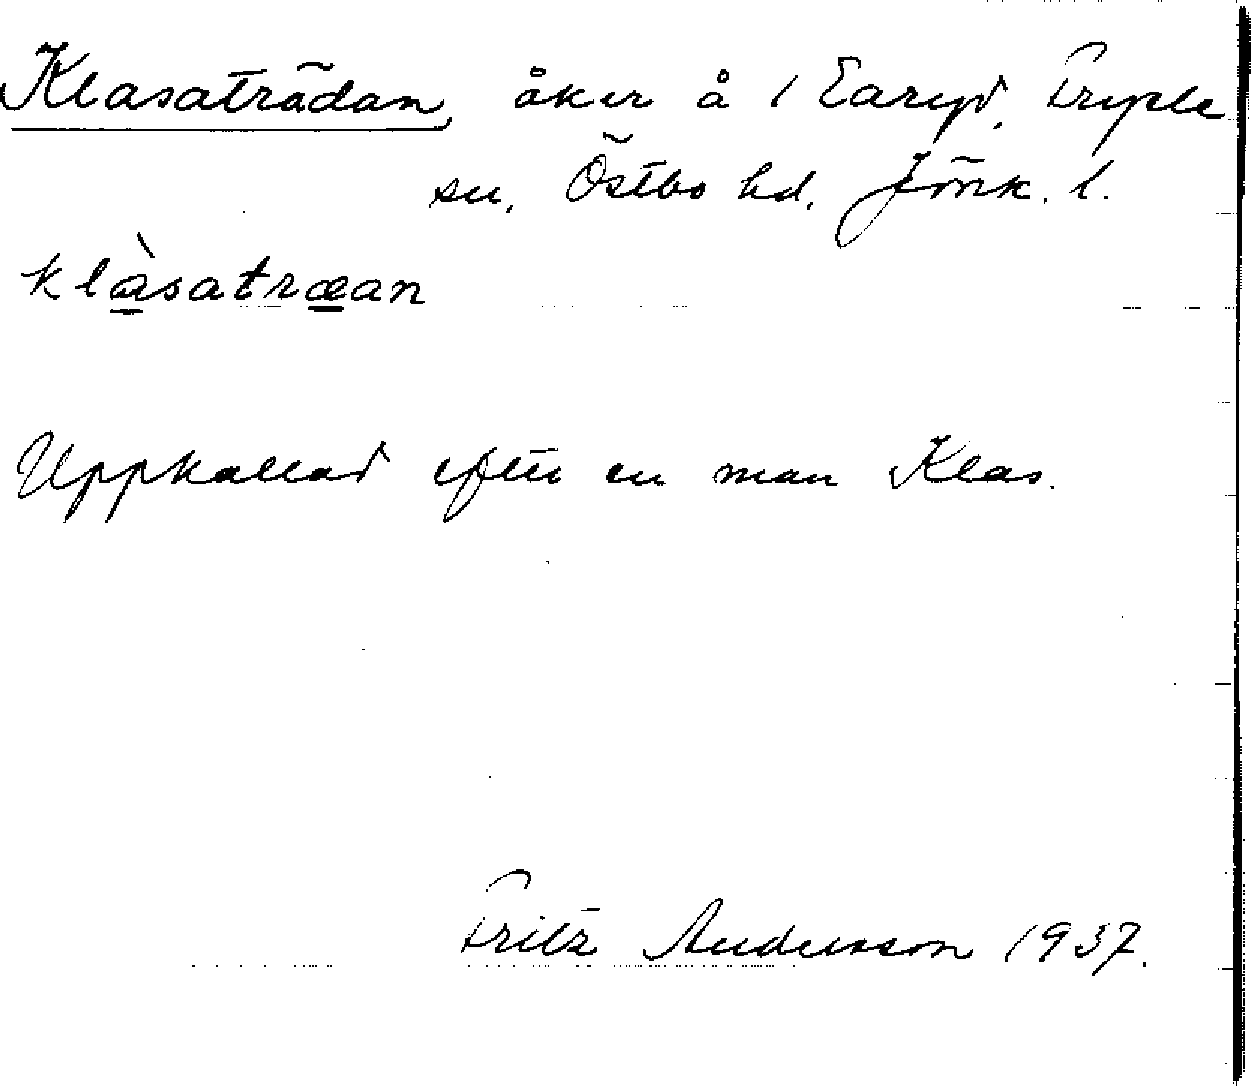 Klasaträdan, åker å 1 Earyd, Fryele
sn, Östbo hd, Jönk. l.
klàsatræan
Uppkallad efter en man Klas.
Fritz Andersson 1937.